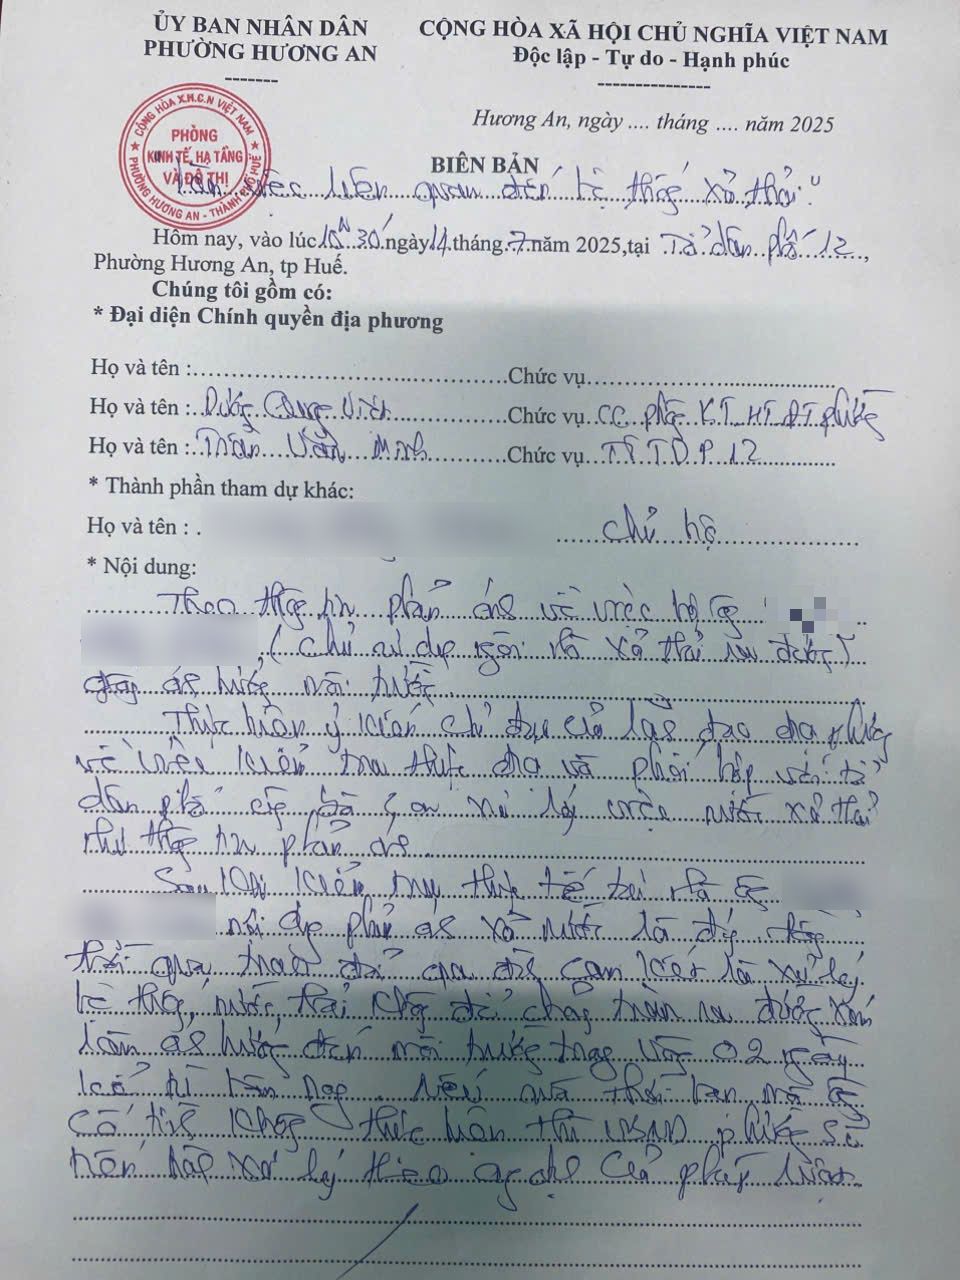 ỦY BAN NHÂN DÂN
PHƯỜNG HƯƠNG AN
-------
CỘNG HÒA XÃ HỘI CHỦ NGHĨA VIỆT NAM
Độc lập - Tự do - Hạnh phúc
---------------
CỘNG HÒA X.H.C.N VIỆT NAM
PHÒNG
KINH TẾ, HẠ TẦNG
VÀ ĐÔ THỊ
PHƯỜNG HƯƠNG AN - THÀNH PHỐ HUẾ
Hương An, ngày .... tháng .... năm 2025
BIÊN BẢN
Làm việc liên quan đến hệ thống xả thải"
Hôm nay, vào lúc 10h 30 ngày 14 tháng 7 năm 2025, tại Tổ dân phố 12,
Phường Hương An, tp Huế.
Chúng tôi gồm có:
* Đại diện Chính quyền địa phương
Họ và tên : Chức vụ
Họ và tên : Chức vụ CC phòng KT, HT, ĐT phường
Họ và tên : Trần Văn Minh Chức vụ TTTDP 12
* Thành phần tham dự khác:
Họ và tên : . Chủ hộ
* Nội dung:
Theo thông tin phản ánh về việc hộ ông
(chủ sử dụng ngôi nhà xả thải ra đường)
ảnh hưởng môi trường
Thực hiện ý kiến chỉ đạo của lãnh đạo địa phương
về việc kiểm tra thực địa và phối hợp với tổ
dân phố xử lý việc nước xả thải
như thông tin phản ánh
Sau khi kiểm tra thực tế tại nhà ông
nội dung phản ánh xả nước là đúng, đồng
thời qua trao đổi cam kết là xử lý
hệ thống nước thải không để chảy tràn ra đường
làm ảnh hưởng đến môi trường trong vòng 02 ngày
kể từ hôm nay. Nếu quá thời hạn mà ông
cố tình không thực hiện thì UBND phường sẽ
tiến hành xử lý theo quy định của pháp luật